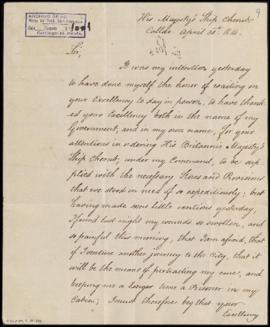 His Majesty's Ship Cherub
Callao April 30th 1814
Sir,
It was my intention yesterday
to have done myself the honor of waiting on
your Excellency to day in person, to have thank
ed your Excellency both in the name of my
Government, and in my own name, for your
attentions in ordering His Britannic Majesty's
Ship Cherub, under my Command, to be sup
plied with the necessary Stores and Provisions
that we stood in need of so expeditiously; but
having made some little exertions yesterday,
I found last night my wounds so swollen, and
so painful this morning, that I am afraid, that
if I venture another journey to the City, that it
will be the means of protracting my cure, and
keeping me a longer time a Prisoner in my
Cabin. I must therefore beg that your
Excellency